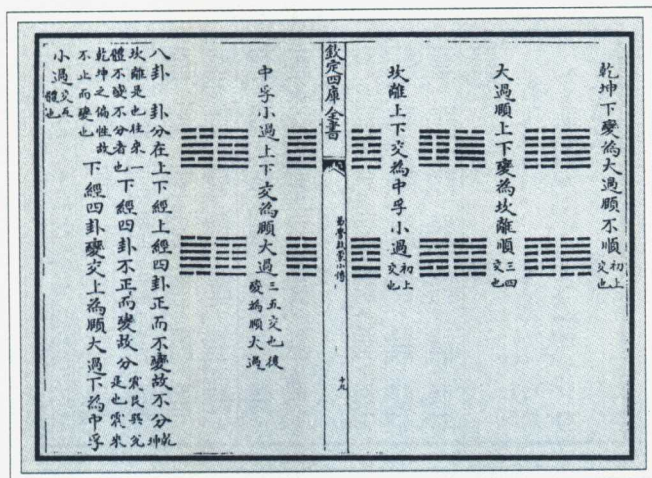 乾坤下變為大過頤不順初上交也
大過頤上下變為坎離順三四交也
坎離上下交為中孚小過初上交也
欽定四庫全書
易學啟蒙小傳
十九
中孚小過上下交為頤大過三五交也後變為頤大過
八卦 卦分在上下經上經四卦正而不變故不分乾坤
坎離是也往來一體不變不分者也下經四卦不正而變故分震艮巽兌是也震來
乾坤之偏性故不止而變也下經四卦變交上為頤大過下為中孚
小過交互體也